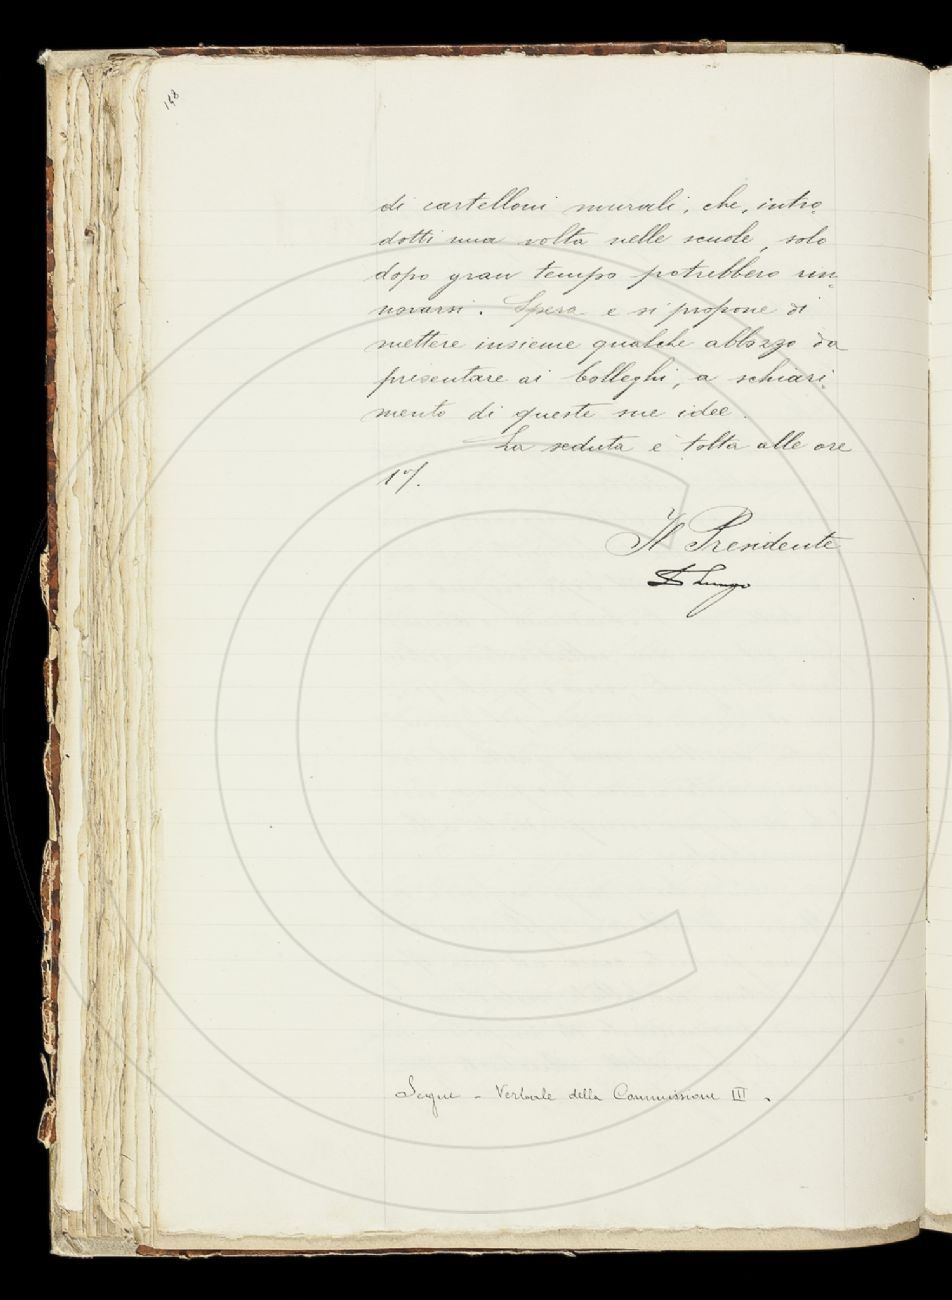 148
di cartelloni murali, che, intro-
dotti una volta nelle scuole, solo
dopo gran tempo potrebbero rin-
novarsi. Spera e si propone di
mettere insieme qualche abbozzo da
presentare ai Colleghi, a schiari-
mento di queste sue idee.
La seduta è tolta alle ore
Il Presidente
Lungo
Segue - Verbale della Commissione III.